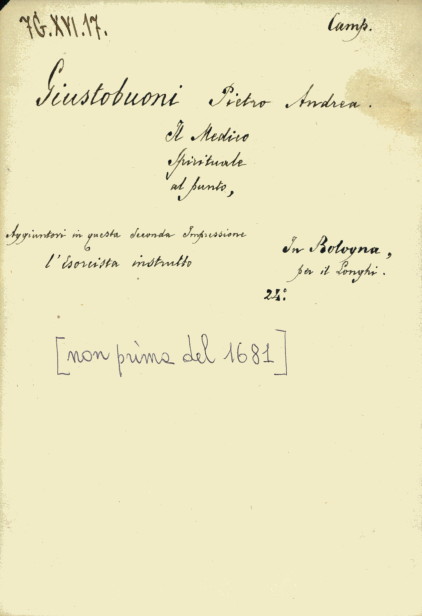 7G.XVI.17.
Camp.
Giustobuoni Pietro Andrea.
Il Medico
Spirituale
al punto,
Aggiuntovi in questa seconda Impressione
l'Esorcista instrutto
In Bologna,
per il Longhi.
24º
[non prima del 1681]